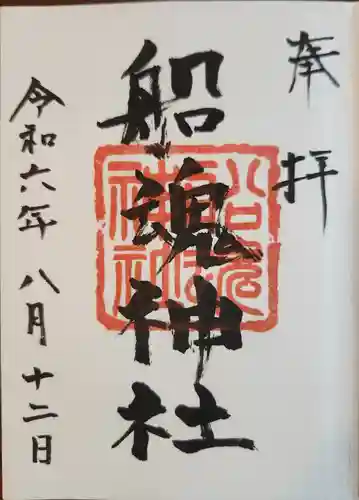 奉拝
船魂神社
船魂
神社
令和六年八月十二日